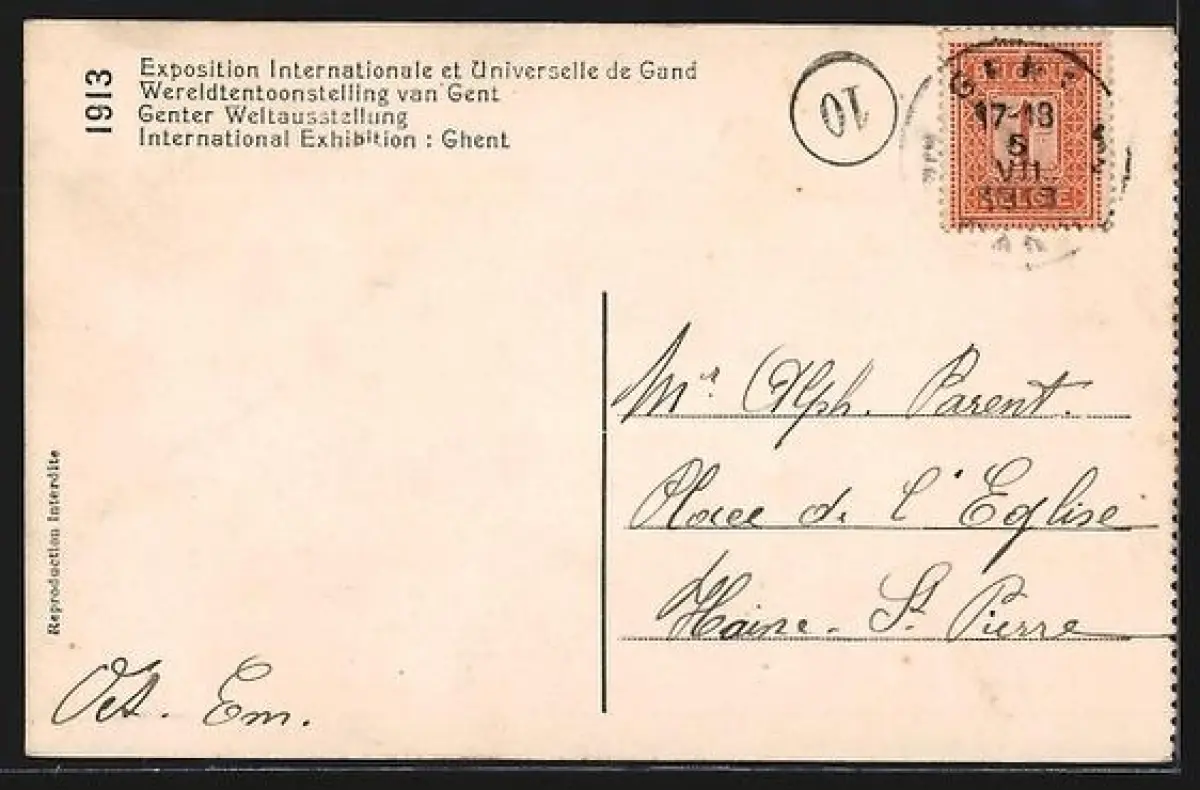 1913
Exposition Internationale et Universelle de Gand
Wereldtentoonstelling van Gent
Genter Weltausstellung
International Exhibition : Ghent
10
17-18
5
VII
1913
BELGIE
Mr. Alph. Parent.
Place de l'Eglise
Haine-St. Pierre
Reproduction interdite
Oct. Em.